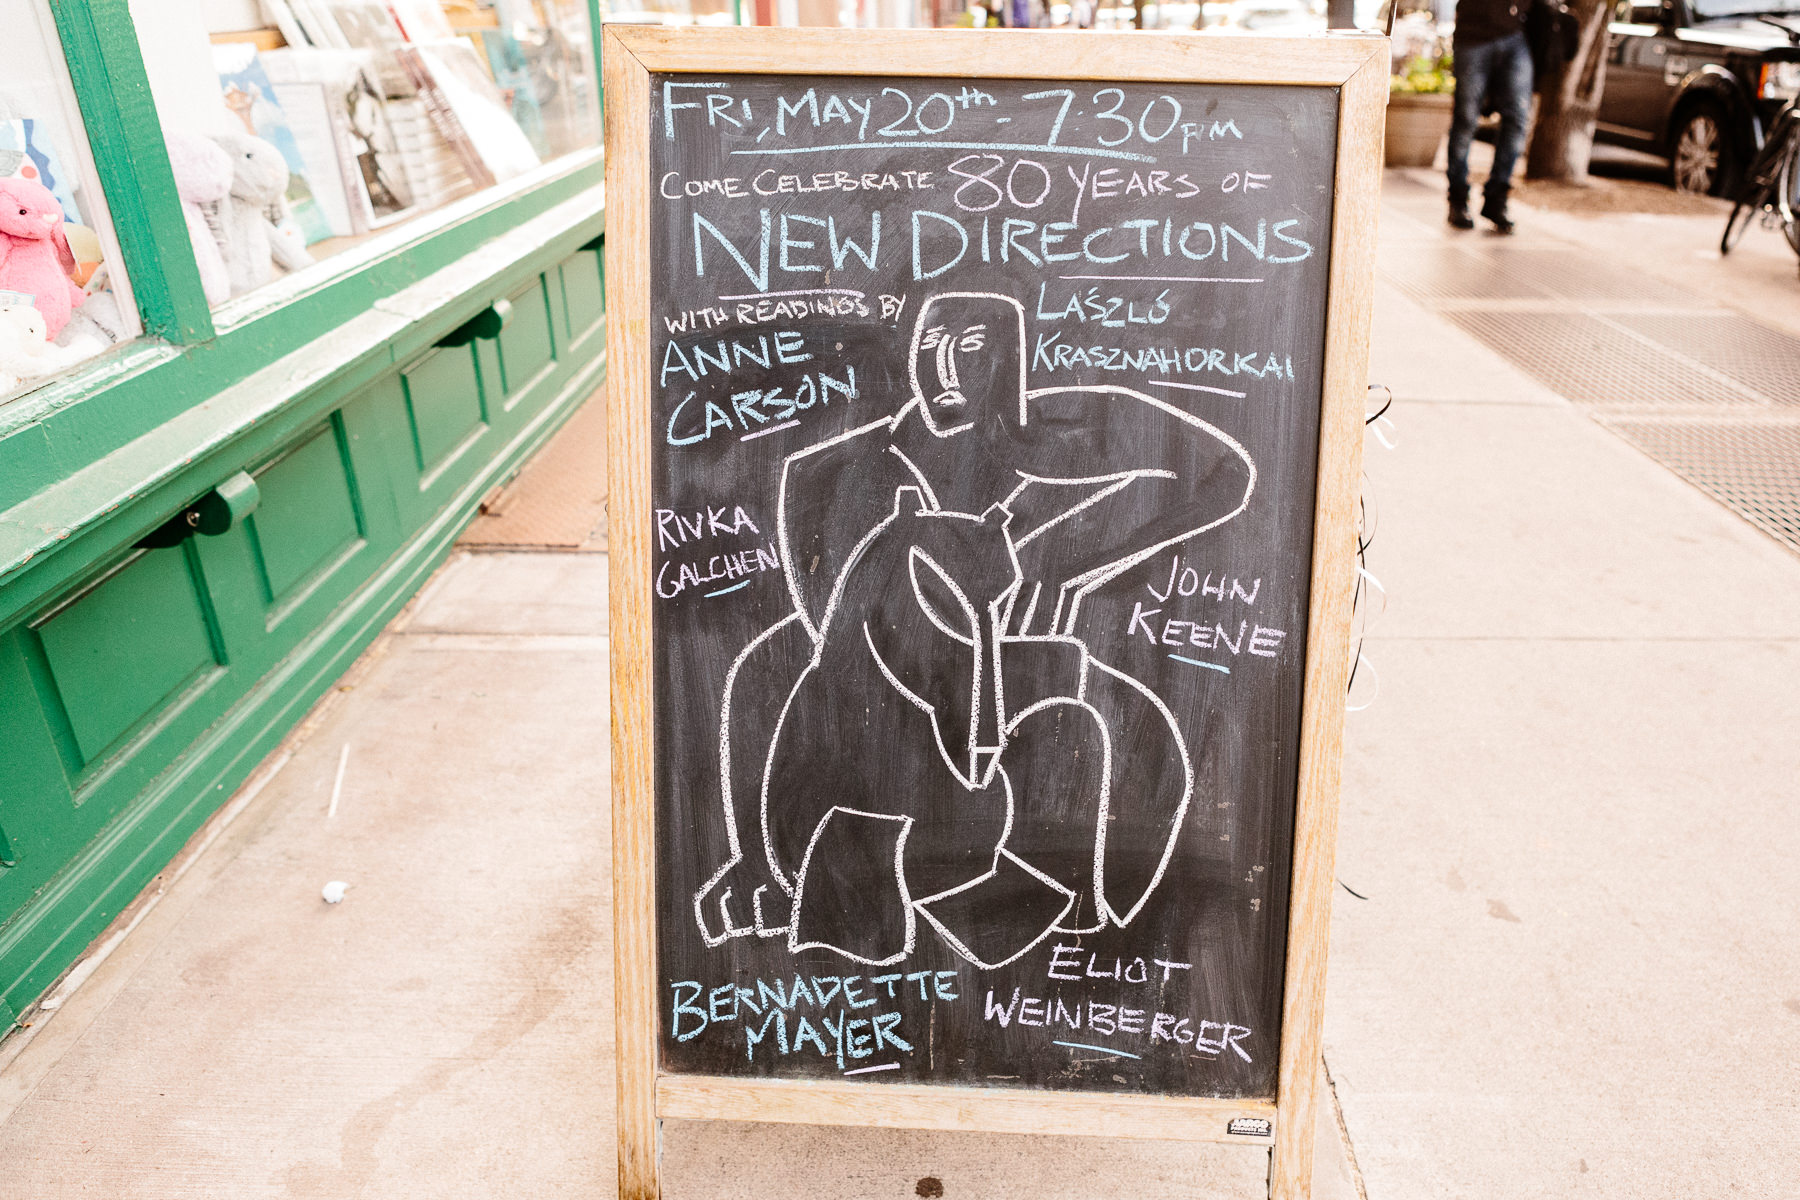 FRI, MAY 20th - 7:30 pm
COME CELEBRATE 80 YEARS OF
NEW DIRECTIONS
WITH READINGS BY
ANNE
CARSON
LÁSZLÓ
KRASZNAHORKAI
RIVKA
GALCHEN
JOHN
KEENE
BERNADETTE
MAYER
ELIOT
WEINBERGER